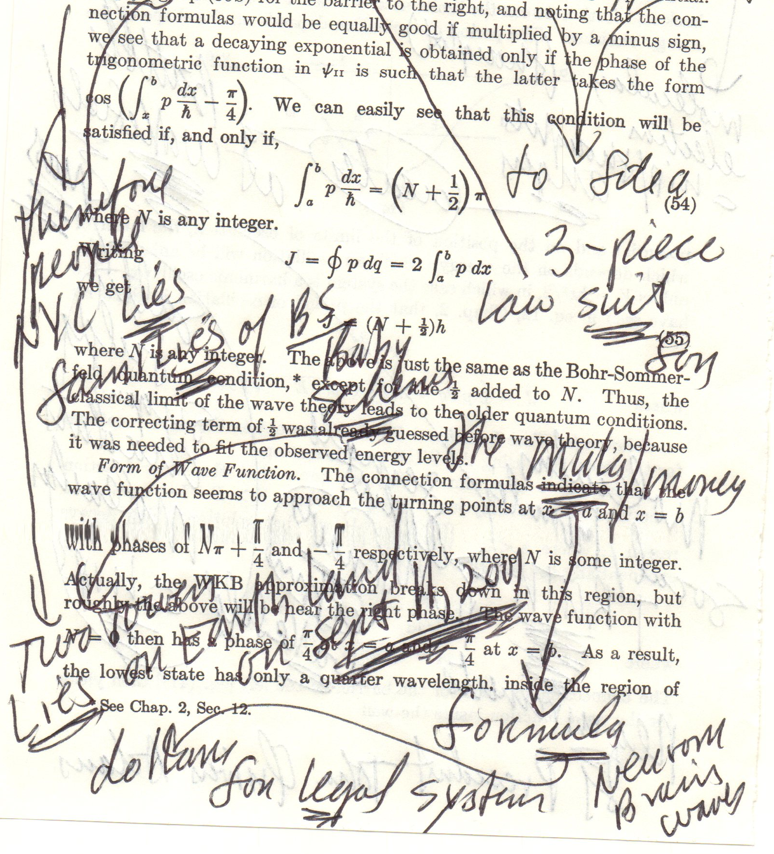 for the barrier to the right, and noting that the con-
nection formulas would be equally good if multiplied by a minus sign,
we see that a decaying exponential is obtained only if the phase of the
trigonometric function in ψII is such that the latter takes the form
cos (∫_x^b p dx/ħ − π/4). We can easily see that this condition will be
satisfied if, and only if,
∫_a^b p dx/ħ = (N + 1/2) π
to
(54)
therefore
where N is any integer.
3-piece
people
Writing
J = ∮ p dq = 2 ∫_a^b p dx
law suit
we get
NYC Lies
Families of BS
= (N + ½)h
(55)
for
where N is any integer. The above is just the same as the Bohr-Sommer-
Baby
feld quantum condition,* except for the ½ added to N. Thus, the
classical limit of the wave theory leads to the older quantum conditions.
The correcting term of ½ was already guessed before wave theory, because
it was needed to fit the observed energy levels.
the
money
Form of Wave Function. The connection formulas indicate that the
wave function seems to approach the turning points at x = a and x = b
with phases of Nπ + π/4 and − π/4 respectively, where N is some integer.
Actually, the WKB approximation breaks down in this region, but
roughly the above will be near the right phase. The wave function with
Two Towers on Earth
on Sept 11 2001
N = 0 then has a phase of π/4 at x = a and − π/4 at x = b. As a result,
the lowest state has only a quarter wavelength inside the region of
Lies
*See Chap. 2, Sec. 12.
formula
dollars
for legal system
Neuron
Brain
waves